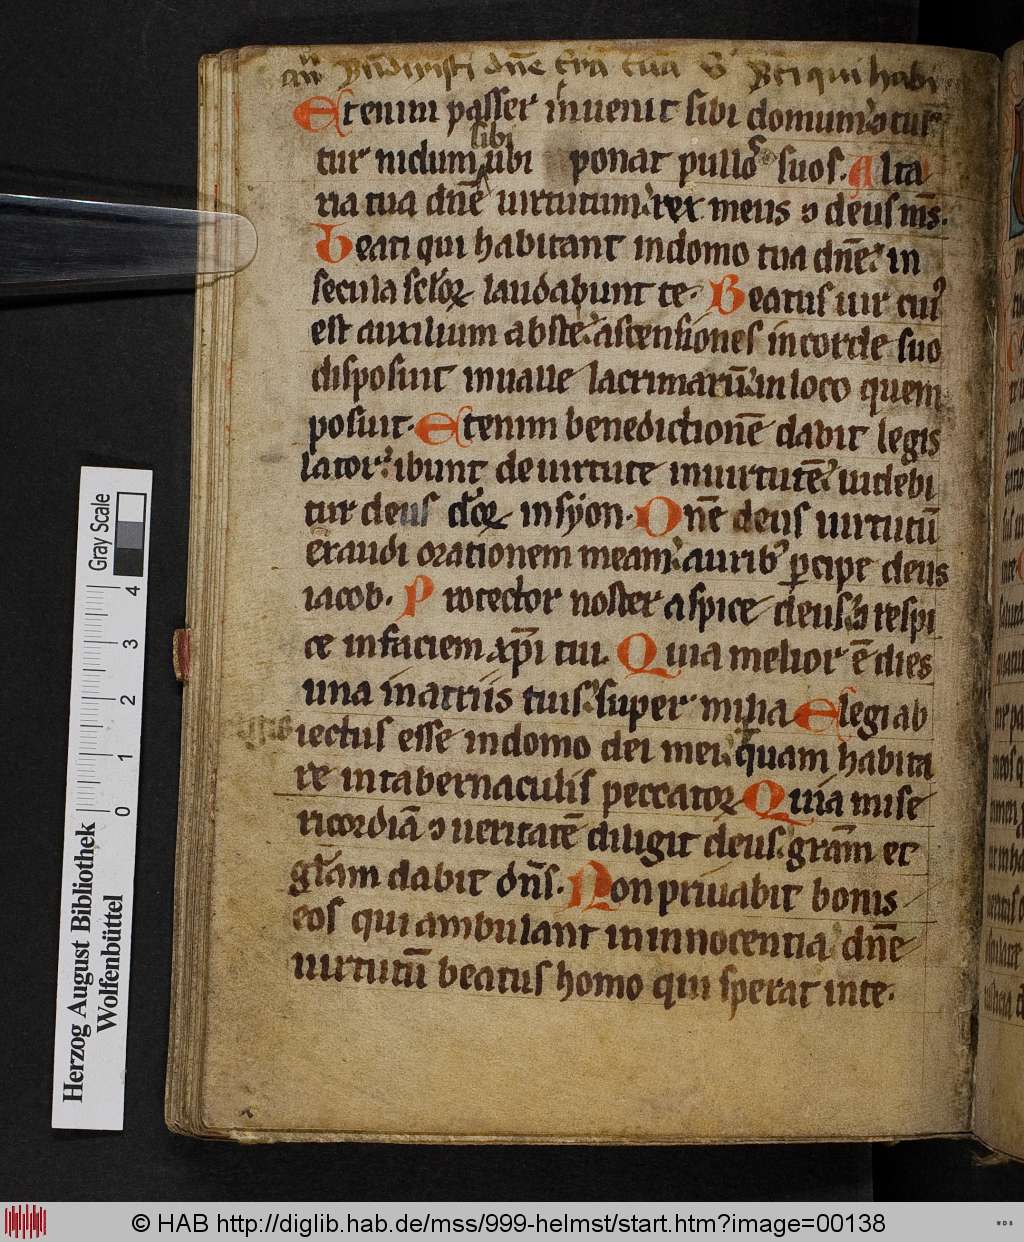 an̄ Bn̄dixisti dn̄e t̄rā tuā Bt̄i qui habi
Etenim passer inuenit sibi domum: ⁊ tur
sibi
tur nidum ubi ponat pullos suos. Alta
ria tua dn̄e uirtutum: rex meus ⁊ deus m̄s.
Beati qui habitant in domo tua dn̄e: in
secula sc̄loꝝ laudabunt te. Beatus uir cuiꝰ
est auxilium abs te: ascensiones in corde suo
disposuit in ualle lacrimarū: in loco quem
posuit. Etenim benedictionē dabit legis
lator: ibunt de uirtute in uirtutē: uidebi
tur deus d̄oꝝ in syon. Dn̄e deus uirtutū
exaudi orationem meam: auribꝰ ꝑcipe deus
iacob. Protector noster aspice deus: ⁊ respi
ce in faciem xp̄i tui. Quia melior ē dies
una in atriis tuis: super milia Elegi ab
iectus esse in domo dei mei: quam habita
re in tabernaculis peccatoꝝ Quia mise
ricordiā ⁊ ueritatē diligit deus: gr̄am et
gl̄am dabit dn̄s. Non priuabit bonis
eos qui ambulant in innocentia dn̄e
uirtutū beatus homo qui sperat in te.
Herzog August Bibliothek
Wolfenbüttel
0 1 2 3 4
Gray Scale
© HAB http://diglib.hab.de/mss/999-helmst/start.htm?image=00138